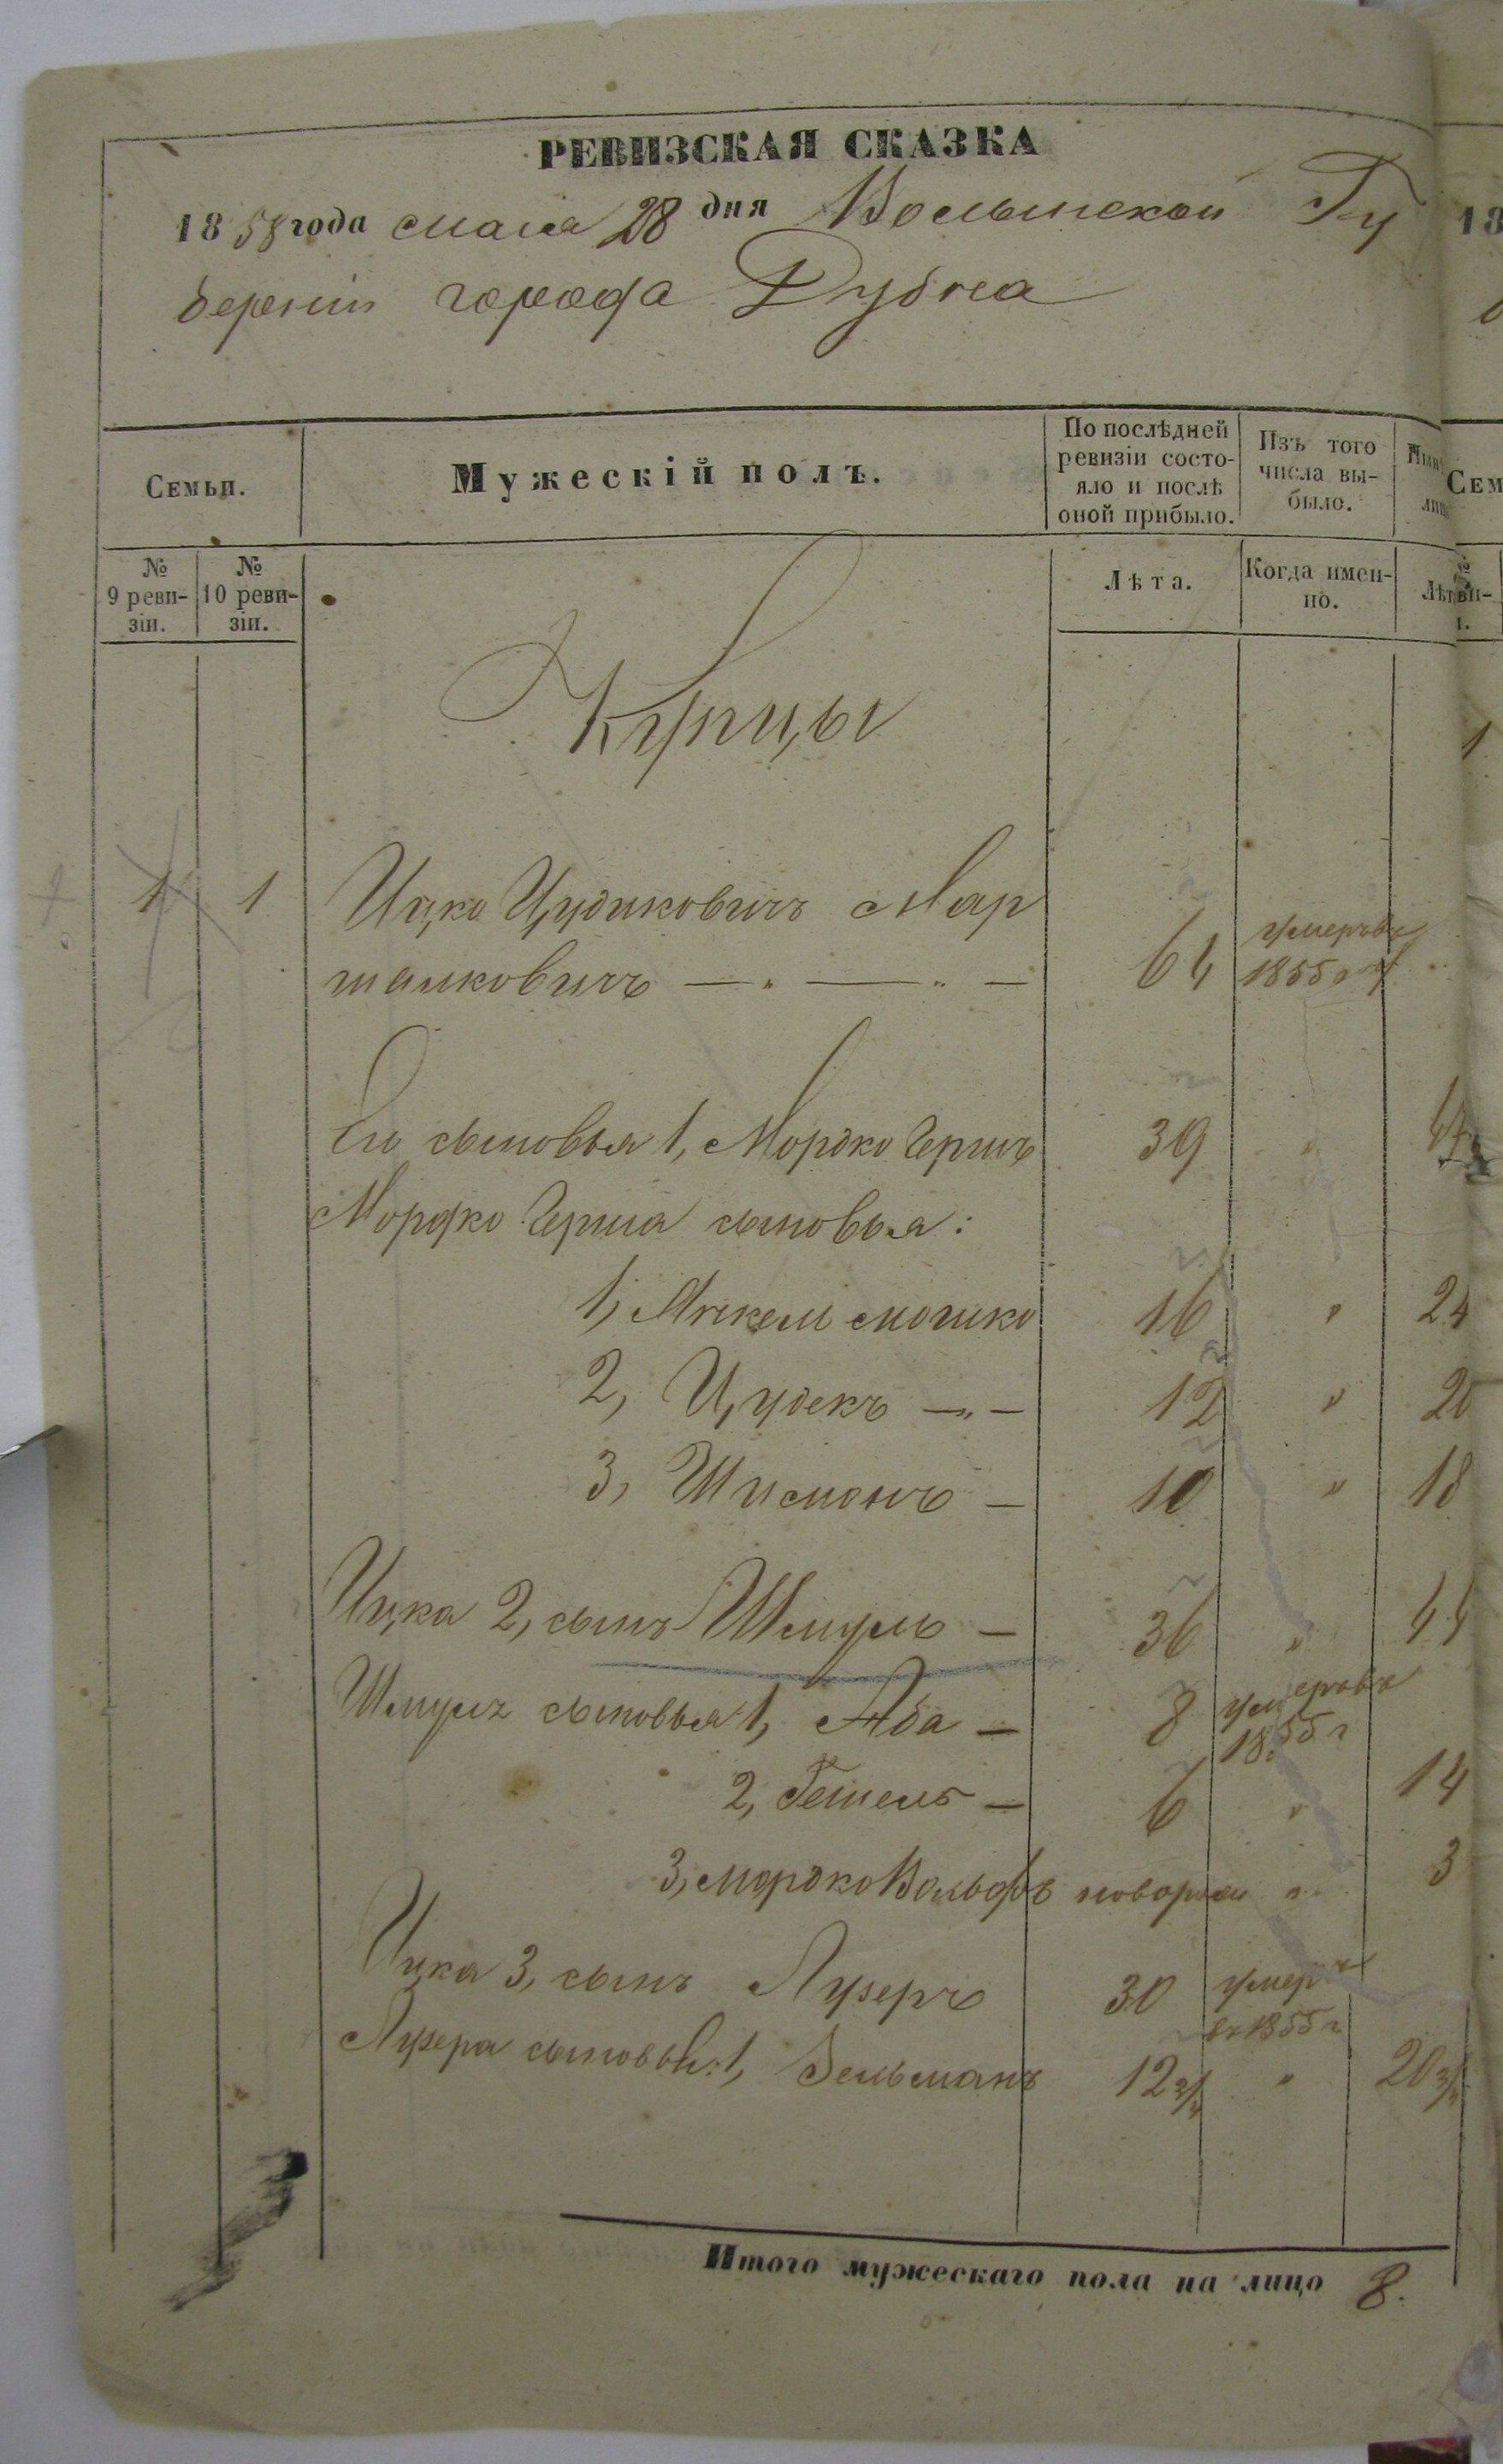 РЕВИЗСКАЯ СКАЗКА
1858 года Мая 28 дня Волынской Гу
берніи города Дубна
Семьи.
Мужескій полъ.
По послѣдней ревизіи состо-
яло и послѣ оной прибыло.
Изъ того числа вы-
было.
№ 9 реви-
зіи.
№ 10 реви-
зіи.
Лѣта.
Когда имен-
но.
Купцы
1 1 Ицко Цудиковичъ Мар
шалковичъ 64 умеръ въ 1855 г
Его сыновья 1, Мордко Гершъ 39 " 47
Мордко Герша сыновья:
1, Янкель Мошко 16 " 24
2, Цудекъ 12 " 20
3, Шимонъ 10 " 18
Ицка 2, сынъ Шмуль 36 " 44
Шмуля сыновья 1, Аба 8 умеръ въ 1855 г
2, Гешель 6 " 14
3, Мордко Вольфъ новорож " 3
Ицка 3, сынъ Лузеръ 30 умеръ въ 1855 г
Лузера сыновья: 1, Зельманъ 12 3/4 " 20 3/4
Итого мужескаго пола на лицо 8.